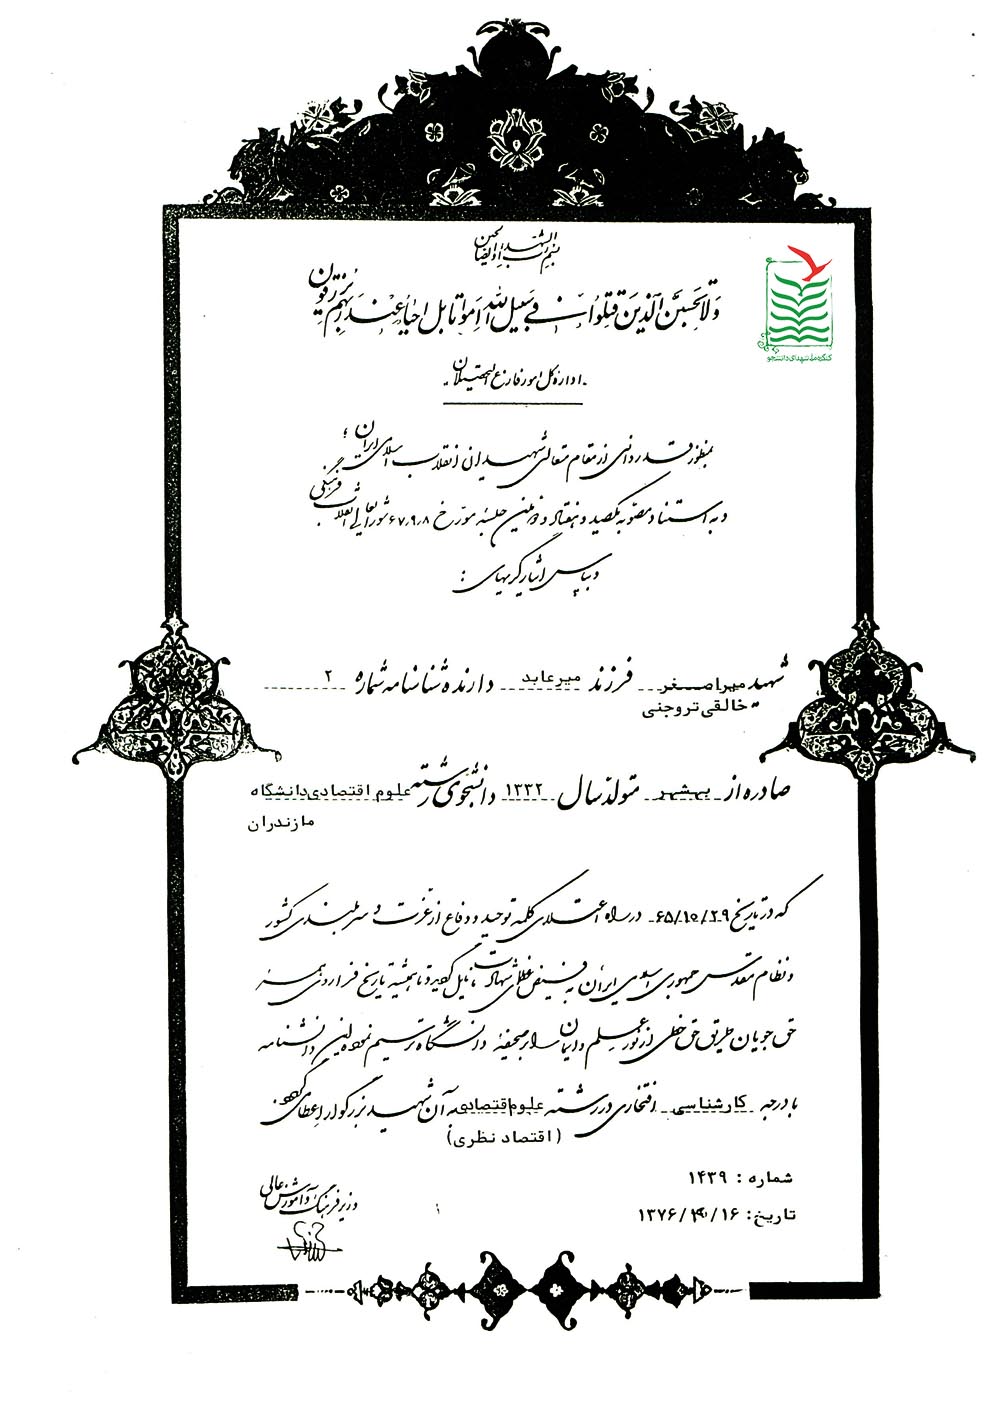 بسم رب الشهداء و الصالحین
ولا تحسبن الذین قتلوا فی سبیل الله امواتا بل احیاء عند ربهم یرزقون
کنگره ملی شهدای دانشجو
اداره کل امور فارغ التحصیلان
بمنظور قدردانی از مقام متعالی شهیدان انقلاب اسلامی ایران ؛
و به استناد مصوبه یکصد و هفتاد و دومین جلسه مورخ ۶۷٫۹٫۸ شورایعالی انقلاب فرهنگی
و بپاس ایثارگریهای :
شهید میراصغر فرزند میرعابد دارنده شناسنامه شماره ۲
خالقی تروجنی
صادره از بهشهر متولد سال ۱۳۳۲ دانشجوی رشته علوم اقتصادی دانشگاه
مازندران
که در تاریخ ۶۵/۱۰/۲۹ در راه اعتلای کلمه توحید و دفاع از عزت و سربلندی کشور
و نظام مقدس جمهوری اسلامی ایران به فیض عظمای شهادت نایل گردید و تا همیشه تاریخ فرا روی همه
حق جویان طریق حق خطی از نور علم و ایمان را بر صحیفه دانشگاه ترسیم نموده این دانشنامه
با درجه کارشناسی افتخاری در رشته علوم اقتصادی به آن شهید بزرگوار اعطا می گردد.
(اقتصاد نظری)
شماره : ۱۴۳۹
تاریخ: ۱۳۷۶/ /۱۶
وزیر فرهنگ و آموزش عالی